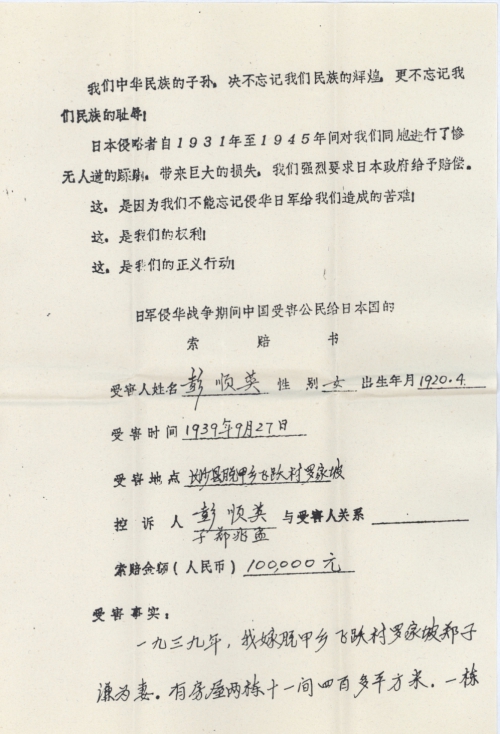 我们中华民族的子孙，决不忘记我们民族的辉煌，更不忘记我
们民族的耻辱！
日本侵略者自1931年至1945年间对我们同胞进行了惨
无人道的蹂躏，带来巨大的损失，我们强烈要求日本政府给予赔偿。
这，是因为我们不能忘记侵华日军给我们造成的苦难！
这，是我们的权利！
这，是我们的正义行动！
日军侵华战争期间中国受害公民给日本国的
索 赔 书
受害人姓名 彭顺英 性 别 女 出生年月 1920.4.
受害时间 1939年9月27日
受害地点 长沙县脱甲乡飞跃村罗家坡
控 诉 人 彭顺英 与受害人关系
子郑兆孟
索赔金额（人民币） 100,000元
受害事实：
一九三九年，我嫁脱甲乡飞跃村罗家坡郑子
谦为妻。有房屋两栋十一间四百多平方米．一栋